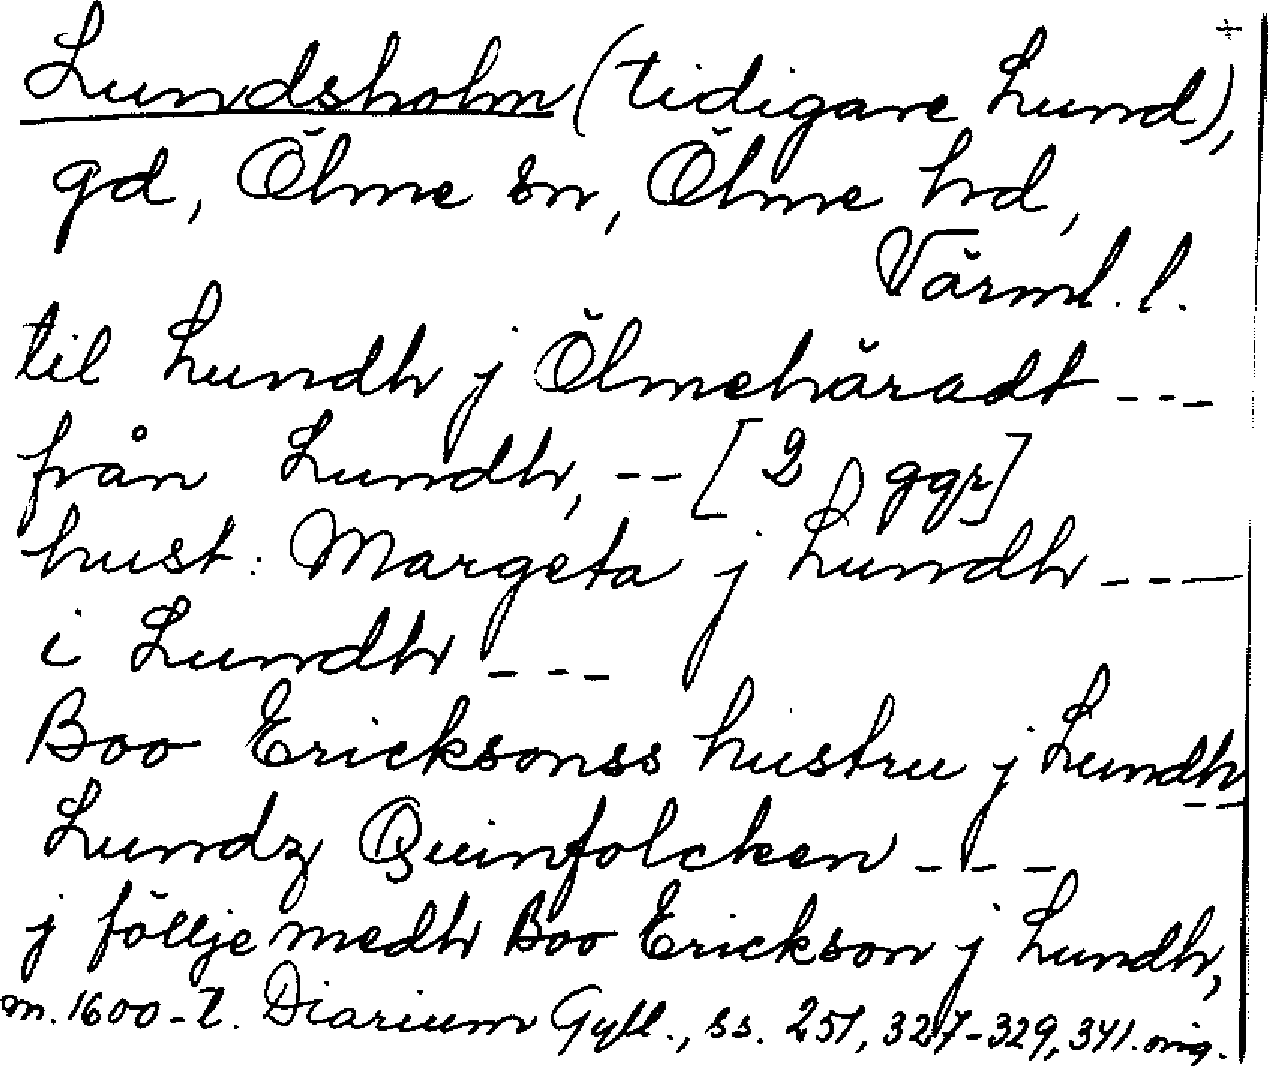 Lundsholm (tidigare Lund),
gd, Ölme sn, Ölme hd,
Värml. l.
til Lundh j Ölmehäradt ---
från Lundh, -- [2 ggr]
hust: Margeta j Lundh ---
i Lundh ---
Boo Ericksonss hustru j Lundh --
Lundz Quinfolcken ---
j föllje medh Boo Erickson j Lundh,
m. 1600-t. Diarium Gyll., ss. 251, 327-329, 341. orig.